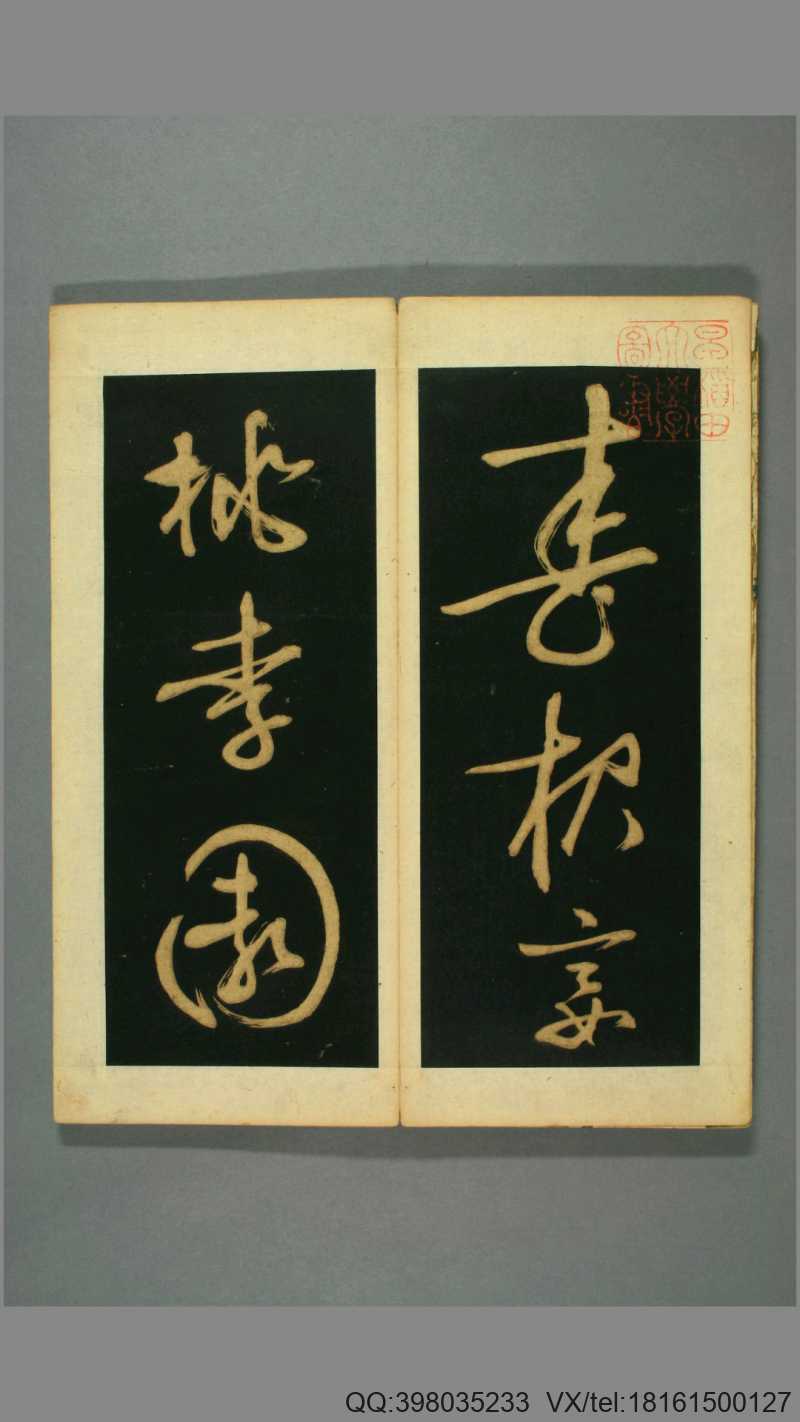 春夜宴
桃李園
QQ:398035233 VX/tel:18161500127